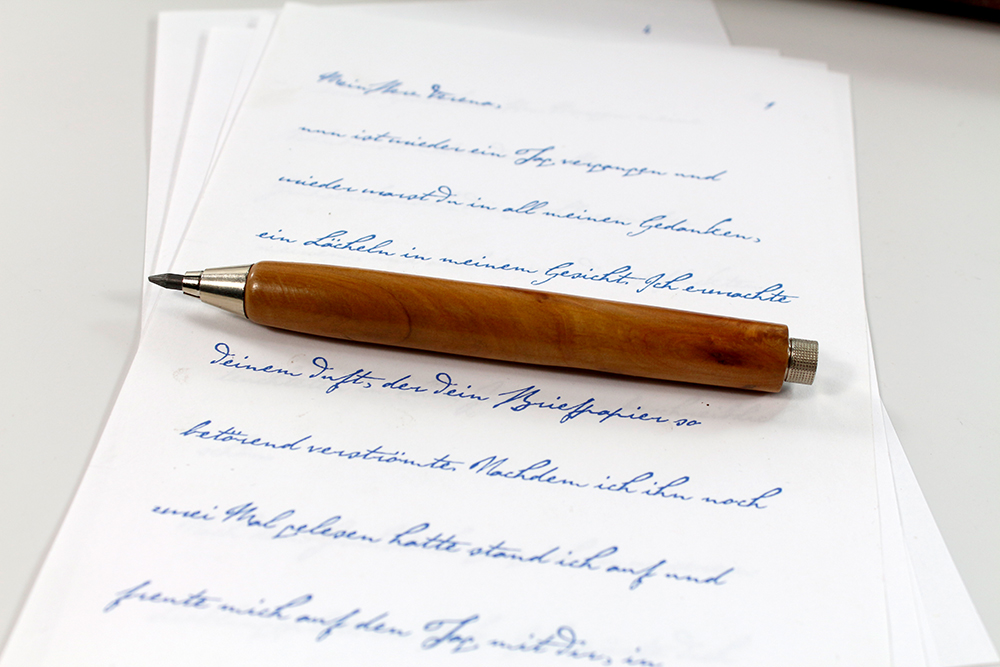 Mein Herz Verena,
nun ist wieder ein Tag vergangen und
wieder warst Du in all meinen Gedanken,
ein Lächeln in meinem Gesicht. Ich erwachte
deinem Duft, der dein Briefpapier so
betörend verströmte. Nachdem ich ihn noch
zwei Mal gelesen hatte stand ich auf und
freute mich auf den Tag mit dir, in